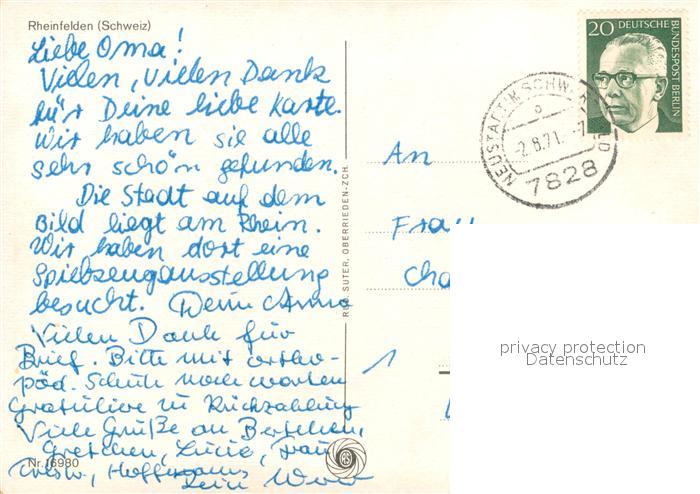 Rheinfelden (Schweiz)
Liebe Oma!
Vielen, vielen Dank
für Deine liebe Karte.
Wir haben sie alle
sehr schön gefunden.
Die Stadt auf dem
Bild liegt am Rhein.
Wir haben dort eine
Spielzeugausstellung
besucht. Deine Anna
Vielen Dank für
Brief. Bitte mit ortho-
päd. Schuh noch warten
Gratuliere zu Rückzahlung
Viele Grüße an
Gretchen, Lucie,
Dein
Nr. 16980
RUD. SUTER, OBERRIEDEN-ZCH.
20 DEUTSCHE BUNDESPOST BERLIN
NEUSTADT IM SCHWARZWALD
-2.8.71.-7
7828
An
Frau
privacy protection
Datenschutz